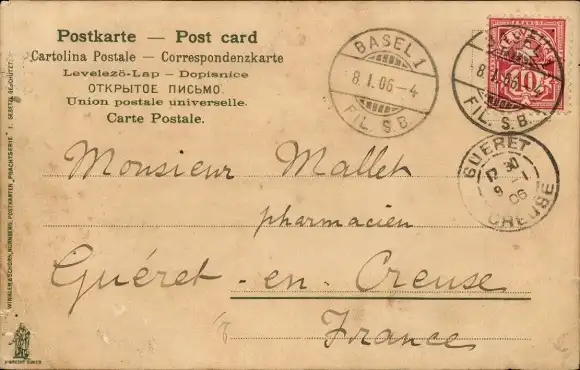 Postkarte — Post card
Cartolina Postale — Correspondenzkarte
Levelező-Lap — Dopisnice
ОТКРЫТОЕ ПИСЬМО.
Union postale universelle.
Carte Postale.
BASEL 1
8.I.06–4
FIL. S.B.
8.I.06–4
10
FIL. S.B.
GUÉRET
CREUSE
Monsieur Mallet
pharmacien
Guéret-en-Creuse
France
WINKLER & SCHORN, NÜRNBERG, POSTKARTEN „PRACHTSERIE“